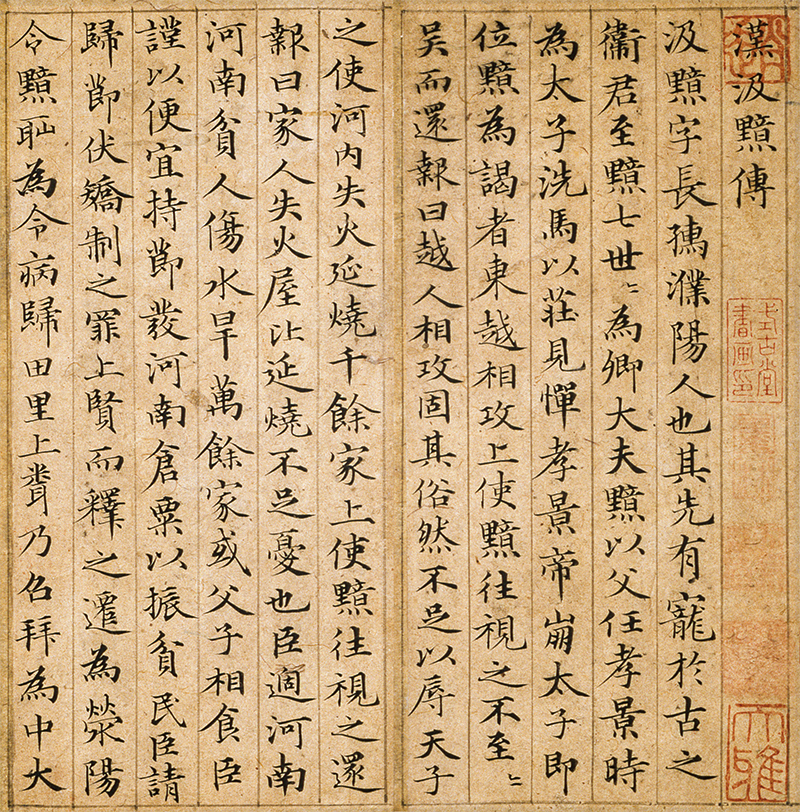 漢汲黯傳
汲黯字長孺濮陽人也其先有寵於古之
衞君至黯七世〻為卿大夫黯以父任孝景時
為太子洗馬以莊見憚孝景帝崩太子即
位黯為謁者東越相攻上使黯往視之不至〻
吴而還報曰越人相攻固其俗然不足以辱天子
之使河内失火延燒千餘家上使黯往視之還
報曰家人失火屋比延燒不足憂也臣過河南
河南貧人傷水旱萬餘家或父子相食臣
謹以便宜持節發河南倉粟以振貧民臣請
歸節伏矯制之罪上賢而釋之遷為滎陽
令黯恥為令病歸田里上聞乃召拜為中大
七古堂
書画印
大雅